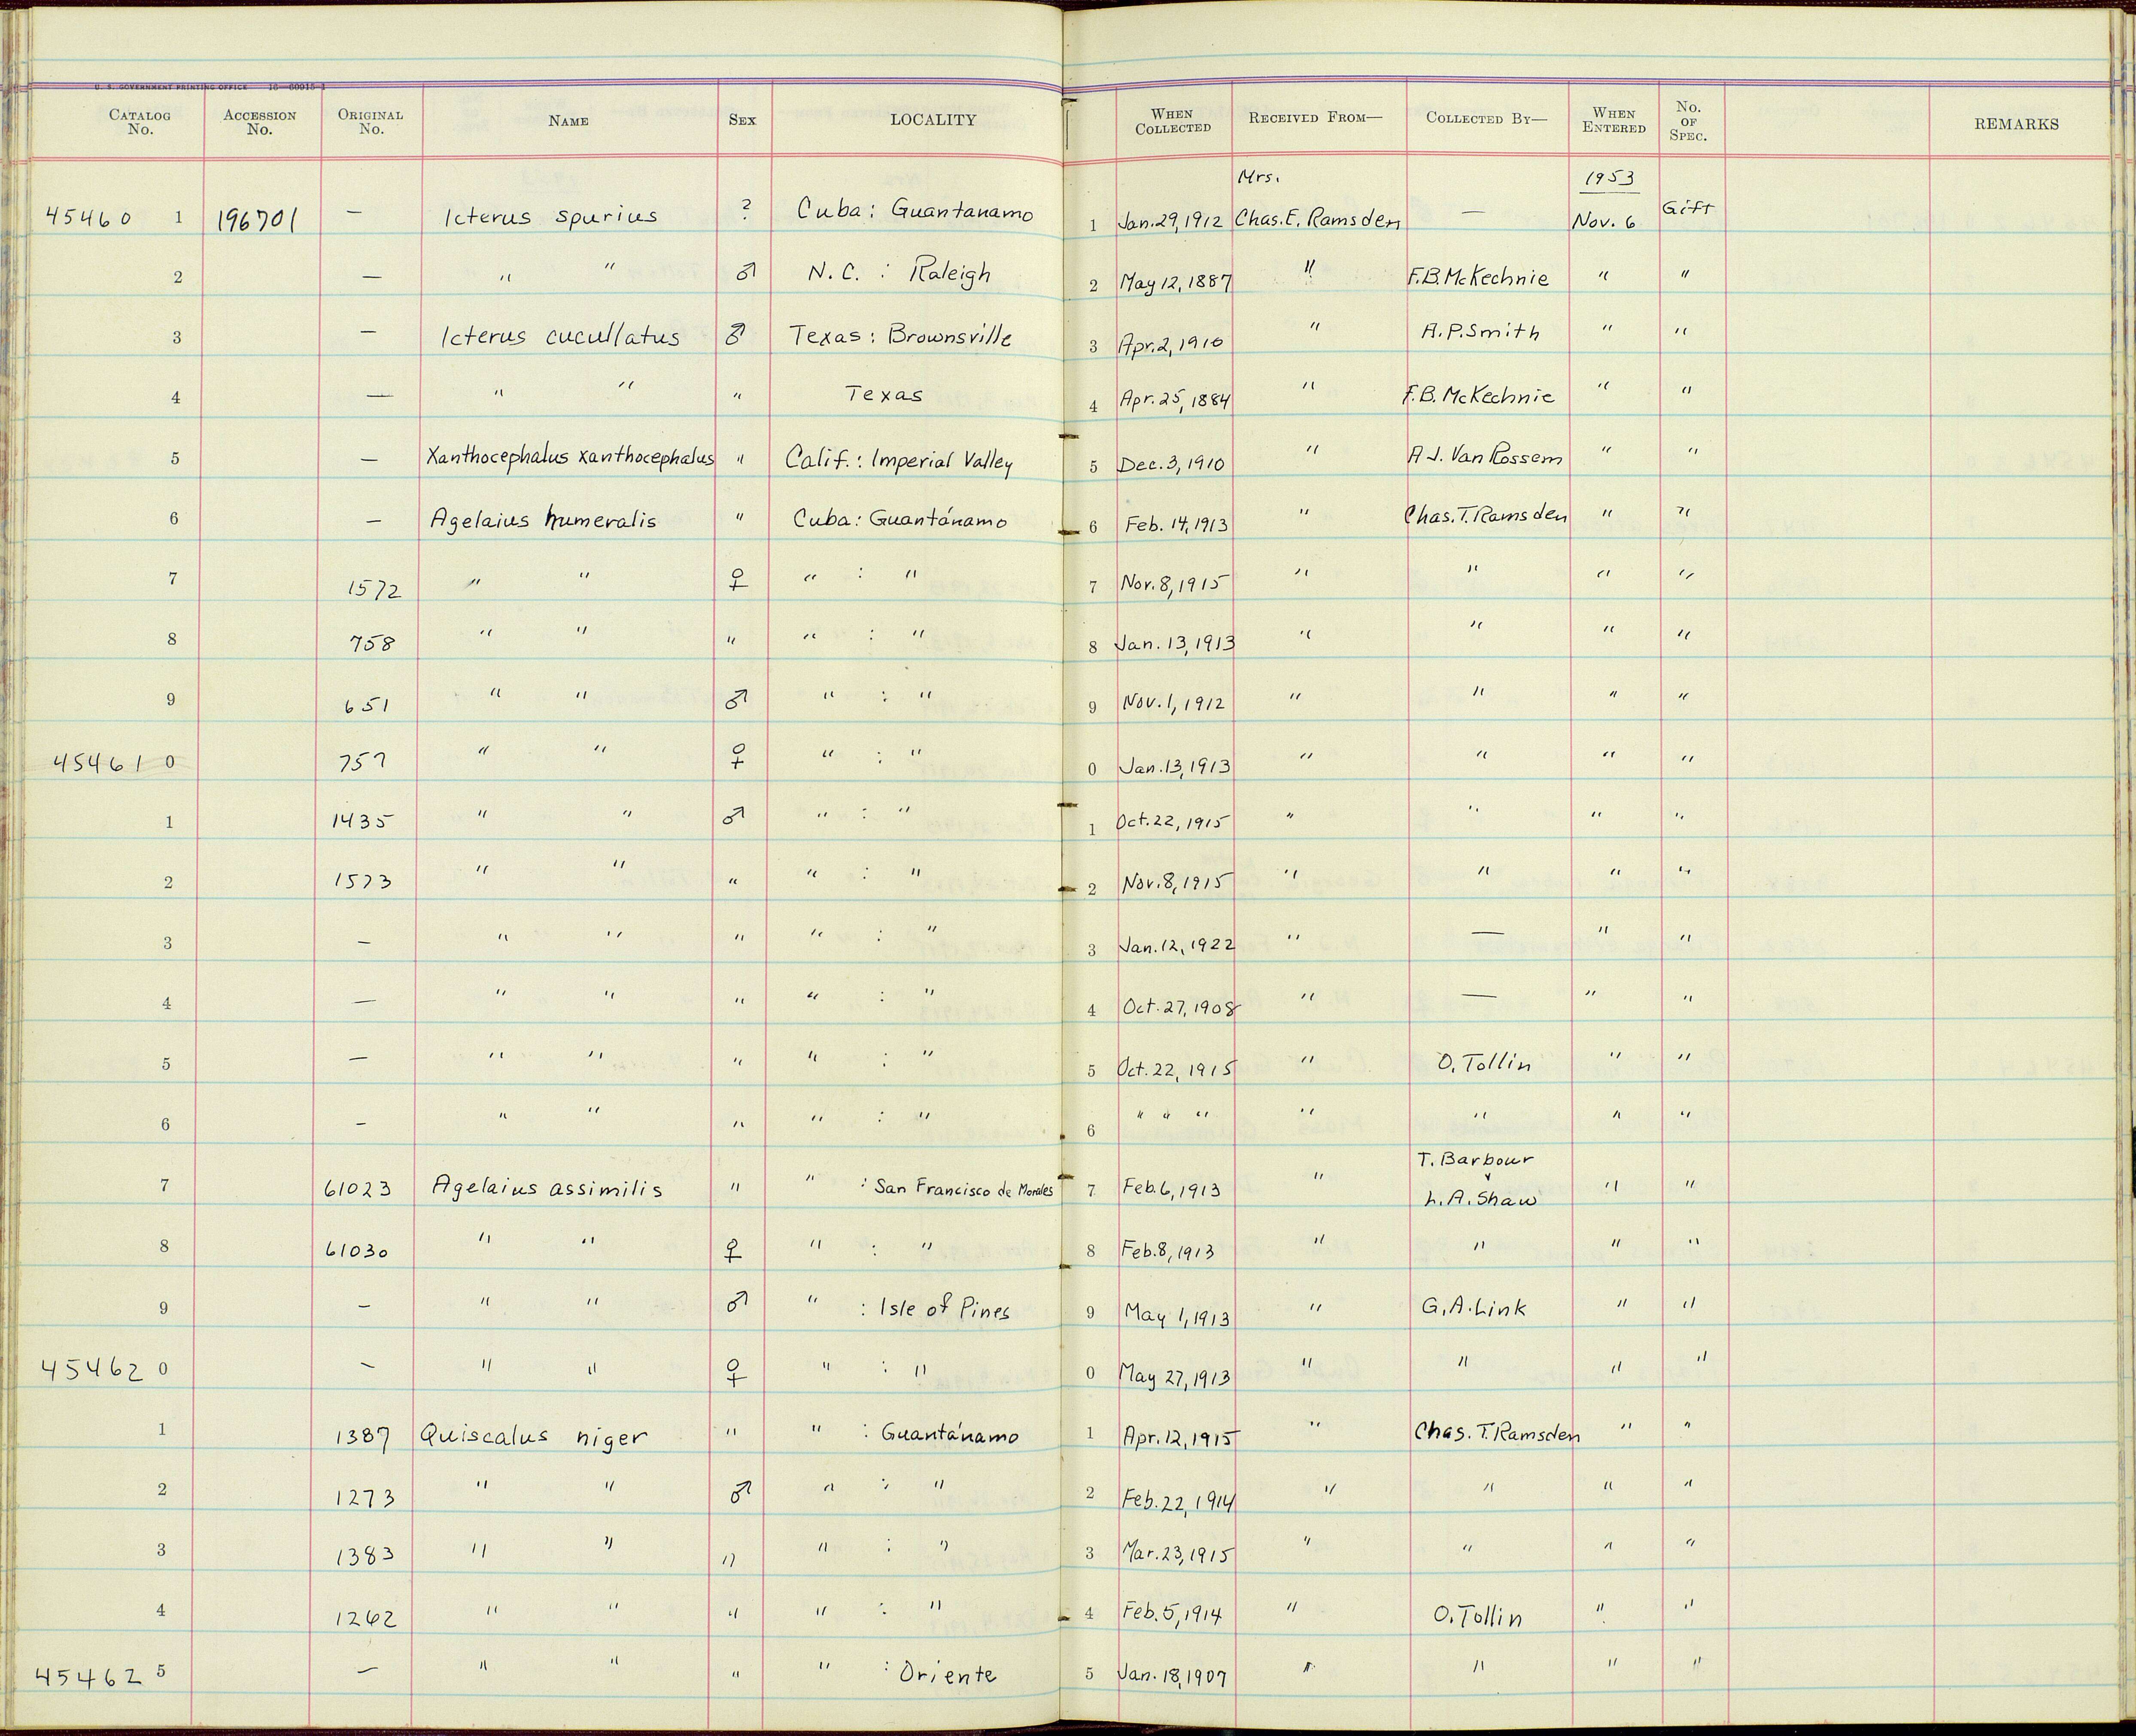 U. S. GOVERNMENT PRINTING OFFICE 16—60915-1
CATALOG No. ACCESSION No. ORIGINAL No. NAME SEX LOCALITY WHEN COLLECTED RECEIVED FROM— COLLECTED BY— WHEN ENTERED No. OF SPEC. REMARKS
Mrs. 1953
45460 1 196701 — Icterus spurius ? Cuba: Guantanamo 1 Jan. 29, 1912 Chas. E. Ramsden — Nov. 6 Gift
2 — " " ♂ N.C. : Raleigh 2 May 12, 1887 " F.B. McKechnie " "
3 — Icterus cucullatus ♂ Texas: Brownsville 3 Apr. 2, 1910 " A.P. Smith " "
4 — " " " Texas 4 Apr. 25, 1884 " F.B. McKechnie " "
5 — Xanthocephalus xanthocephalus " Calif.: Imperial Valley 5 Dec. 3, 1910 " A J. Van Rossem " "
6 — Agelaius humeralis " Cuba: Guantánamo 6 Feb. 14, 1913 " Chas. T. Ramsden " "
7 1572 " " ♀ " : " 7 Nov. 8, 1915 " " " "
8 758 " " " " : " 8 Jan. 13, 1913 " " " "
9 651 " " ♂ " : " 9 Nov. 1, 1912 " " " "
45461 0 757 " " ♀ " : " 0 Jan. 13, 1913 " " " "
1 1435 " " ♂ " : " 1 Oct. 22, 1915 " " " "
2 1573 " " " " : " 2 Nov. 8, 1915 " " " "
3 — " " " " : " 3 Jan. 12, 1922 " — " "
4 — " " " " : " 4 Oct. 27, 1908 " — " "
5 — " " " " : " 5 Oct. 22, 1915 " O. Tollin " "
6 — " " " " : " 6 " " " " " " "
7 61023 Agelaius assimilis " " : San Francisco de Morales 7 Feb. 6, 1913 " T. Barbour & L.A. Shaw " "
8 61030 " " ♀ " : " 8 Feb. 8, 1913 " " " "
9 — " " ♂ " : Isle of Pines 9 May 1, 1913 " G.A. Link " "
45462 0 — " " ♀ " : " 0 May 27, 1913 " " " "
1 1387 Quiscalus niger " " : Guantánamo 1 Apr. 12, 1915 " Chas. T. Ramsden " "
2 1273 " " ♂ " : " 2 Feb. 22, 1914 " " " "
3 1383 " " " " : " 3 Mar. 23, 1915 " " " "
4 1262 " " " " : " 4 Feb. 5, 1914 " O. Tollin " "
45462 5 — " " " " : Oriente 5 Jan. 18, 1907 " " " "